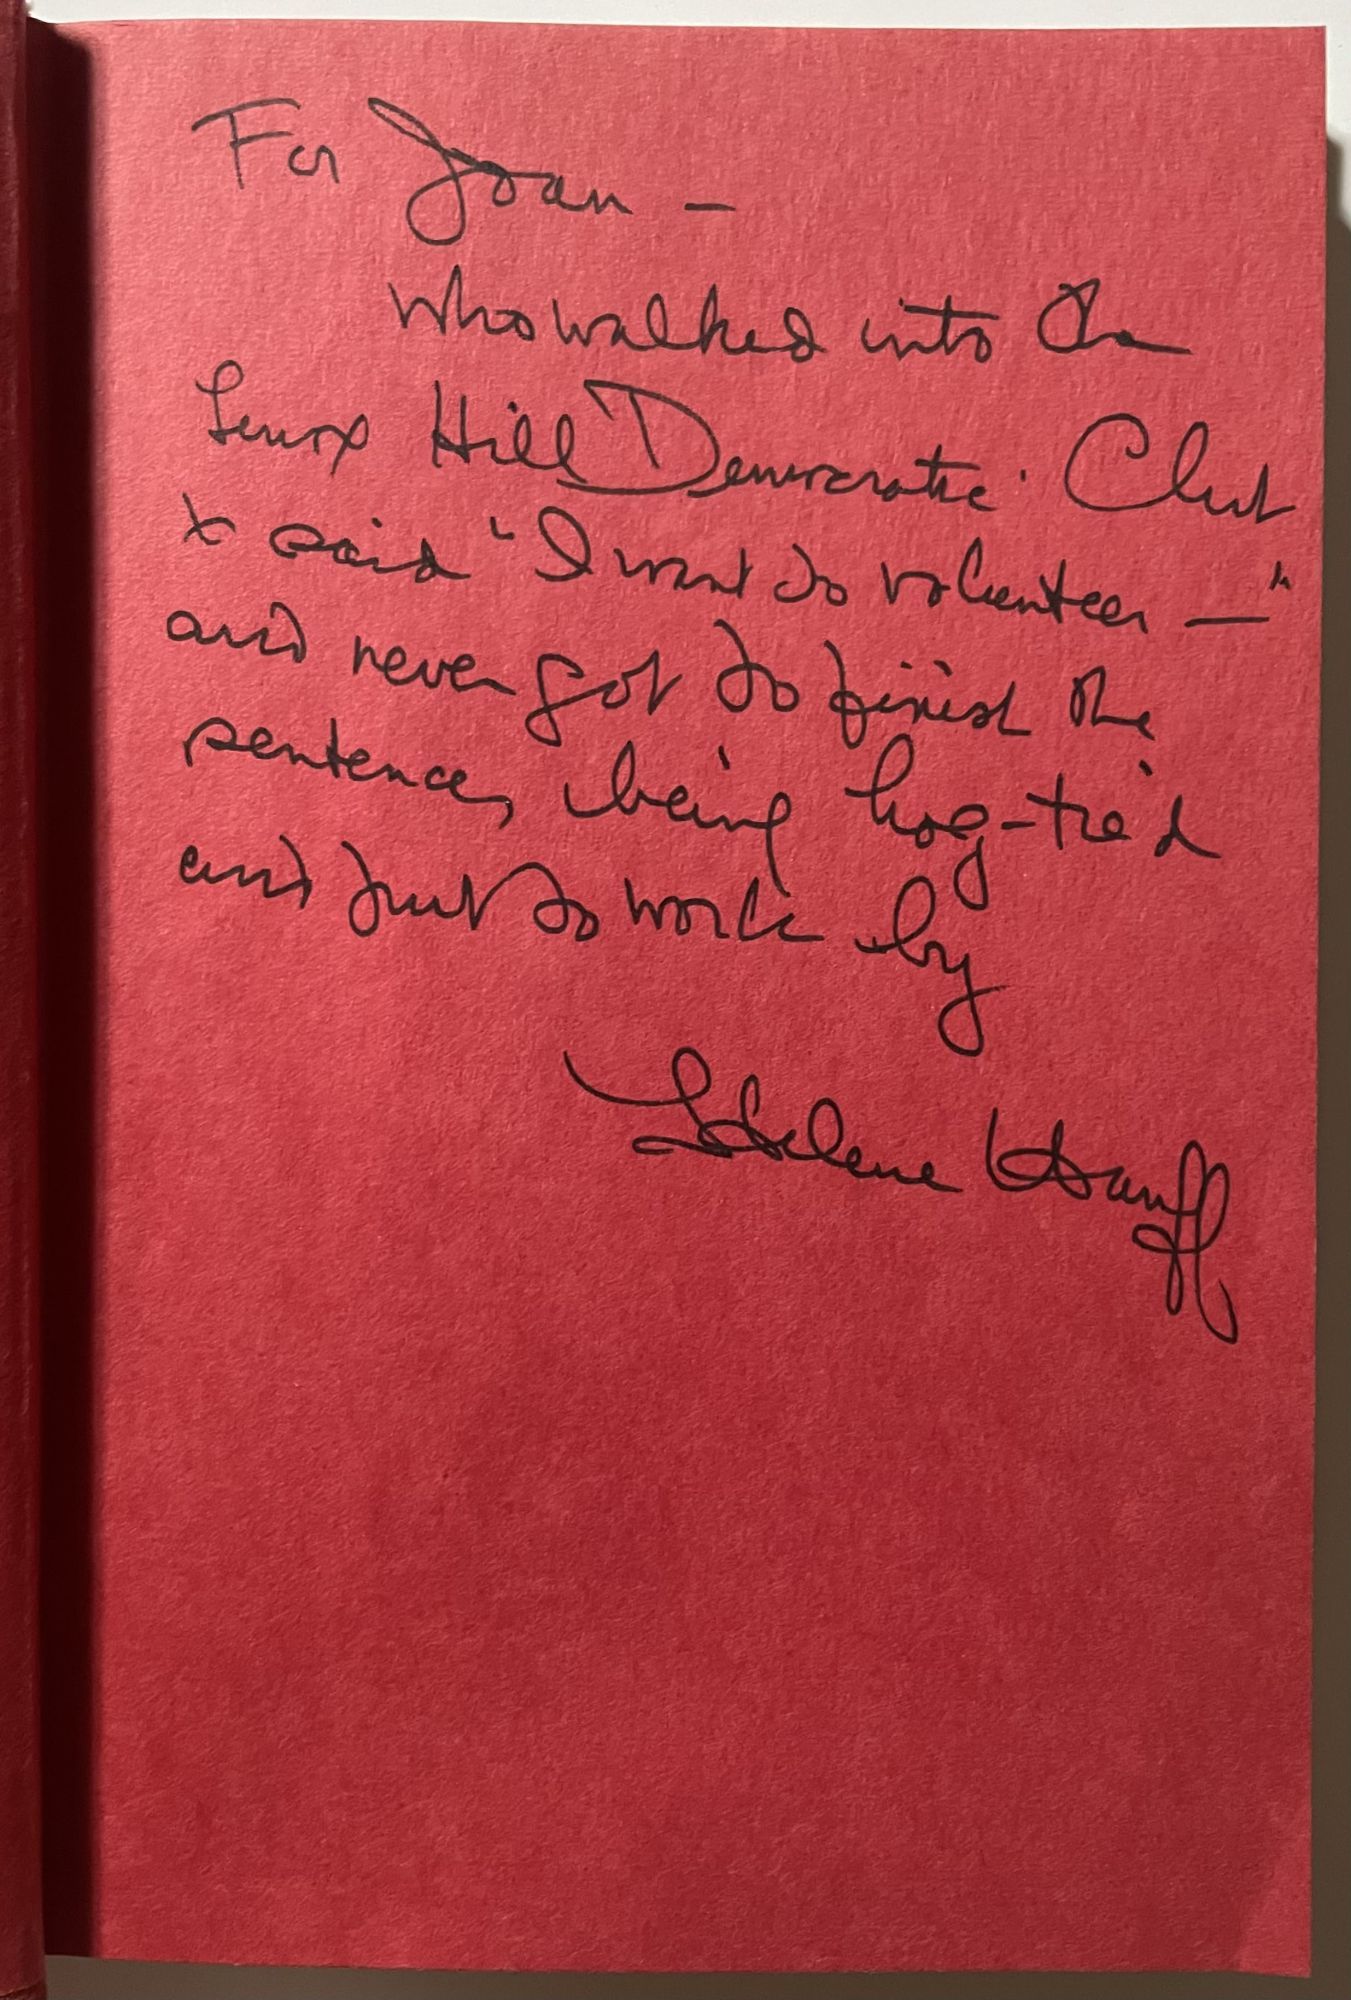 For Joan —
who walked into the
Lenox Hill Democratic Club
& said "I want to volunteer —"
and never got to finish the
sentence, being hog-tie'd
and put to work by
Helene Hanff